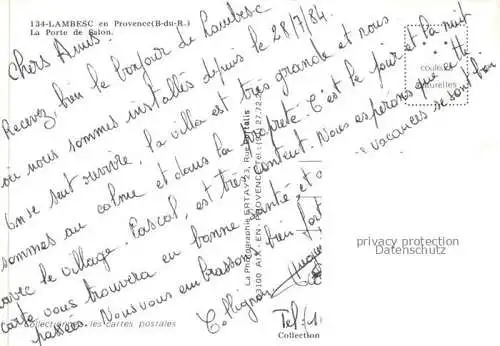 134-LAMBESC en Provence(B-du-R.)
La Porte de Salon.
Chers Amis.
Recevez bien le bonjour de Lambesc
ou nous sommes installés depuis le 28/7/84.
On se sent revivre. La villa est très grande et nous
sommes au calme et dans la propreté C'est le jour et la nuit
avec le village. Pascal, est très content. Nous esperons que cette
carte vous trouvera en bonne santé, et vacances se sont bien
passées. Nous vous embrassons bien fort
Tel:
couleurs
naturelles
La Photographie ERTAY-23, Rue Portalis
13100 AIX-EN-PROVENCE-Tel:
Collectionnez les cartes postales
Collection
privacy protection
Datenschutz